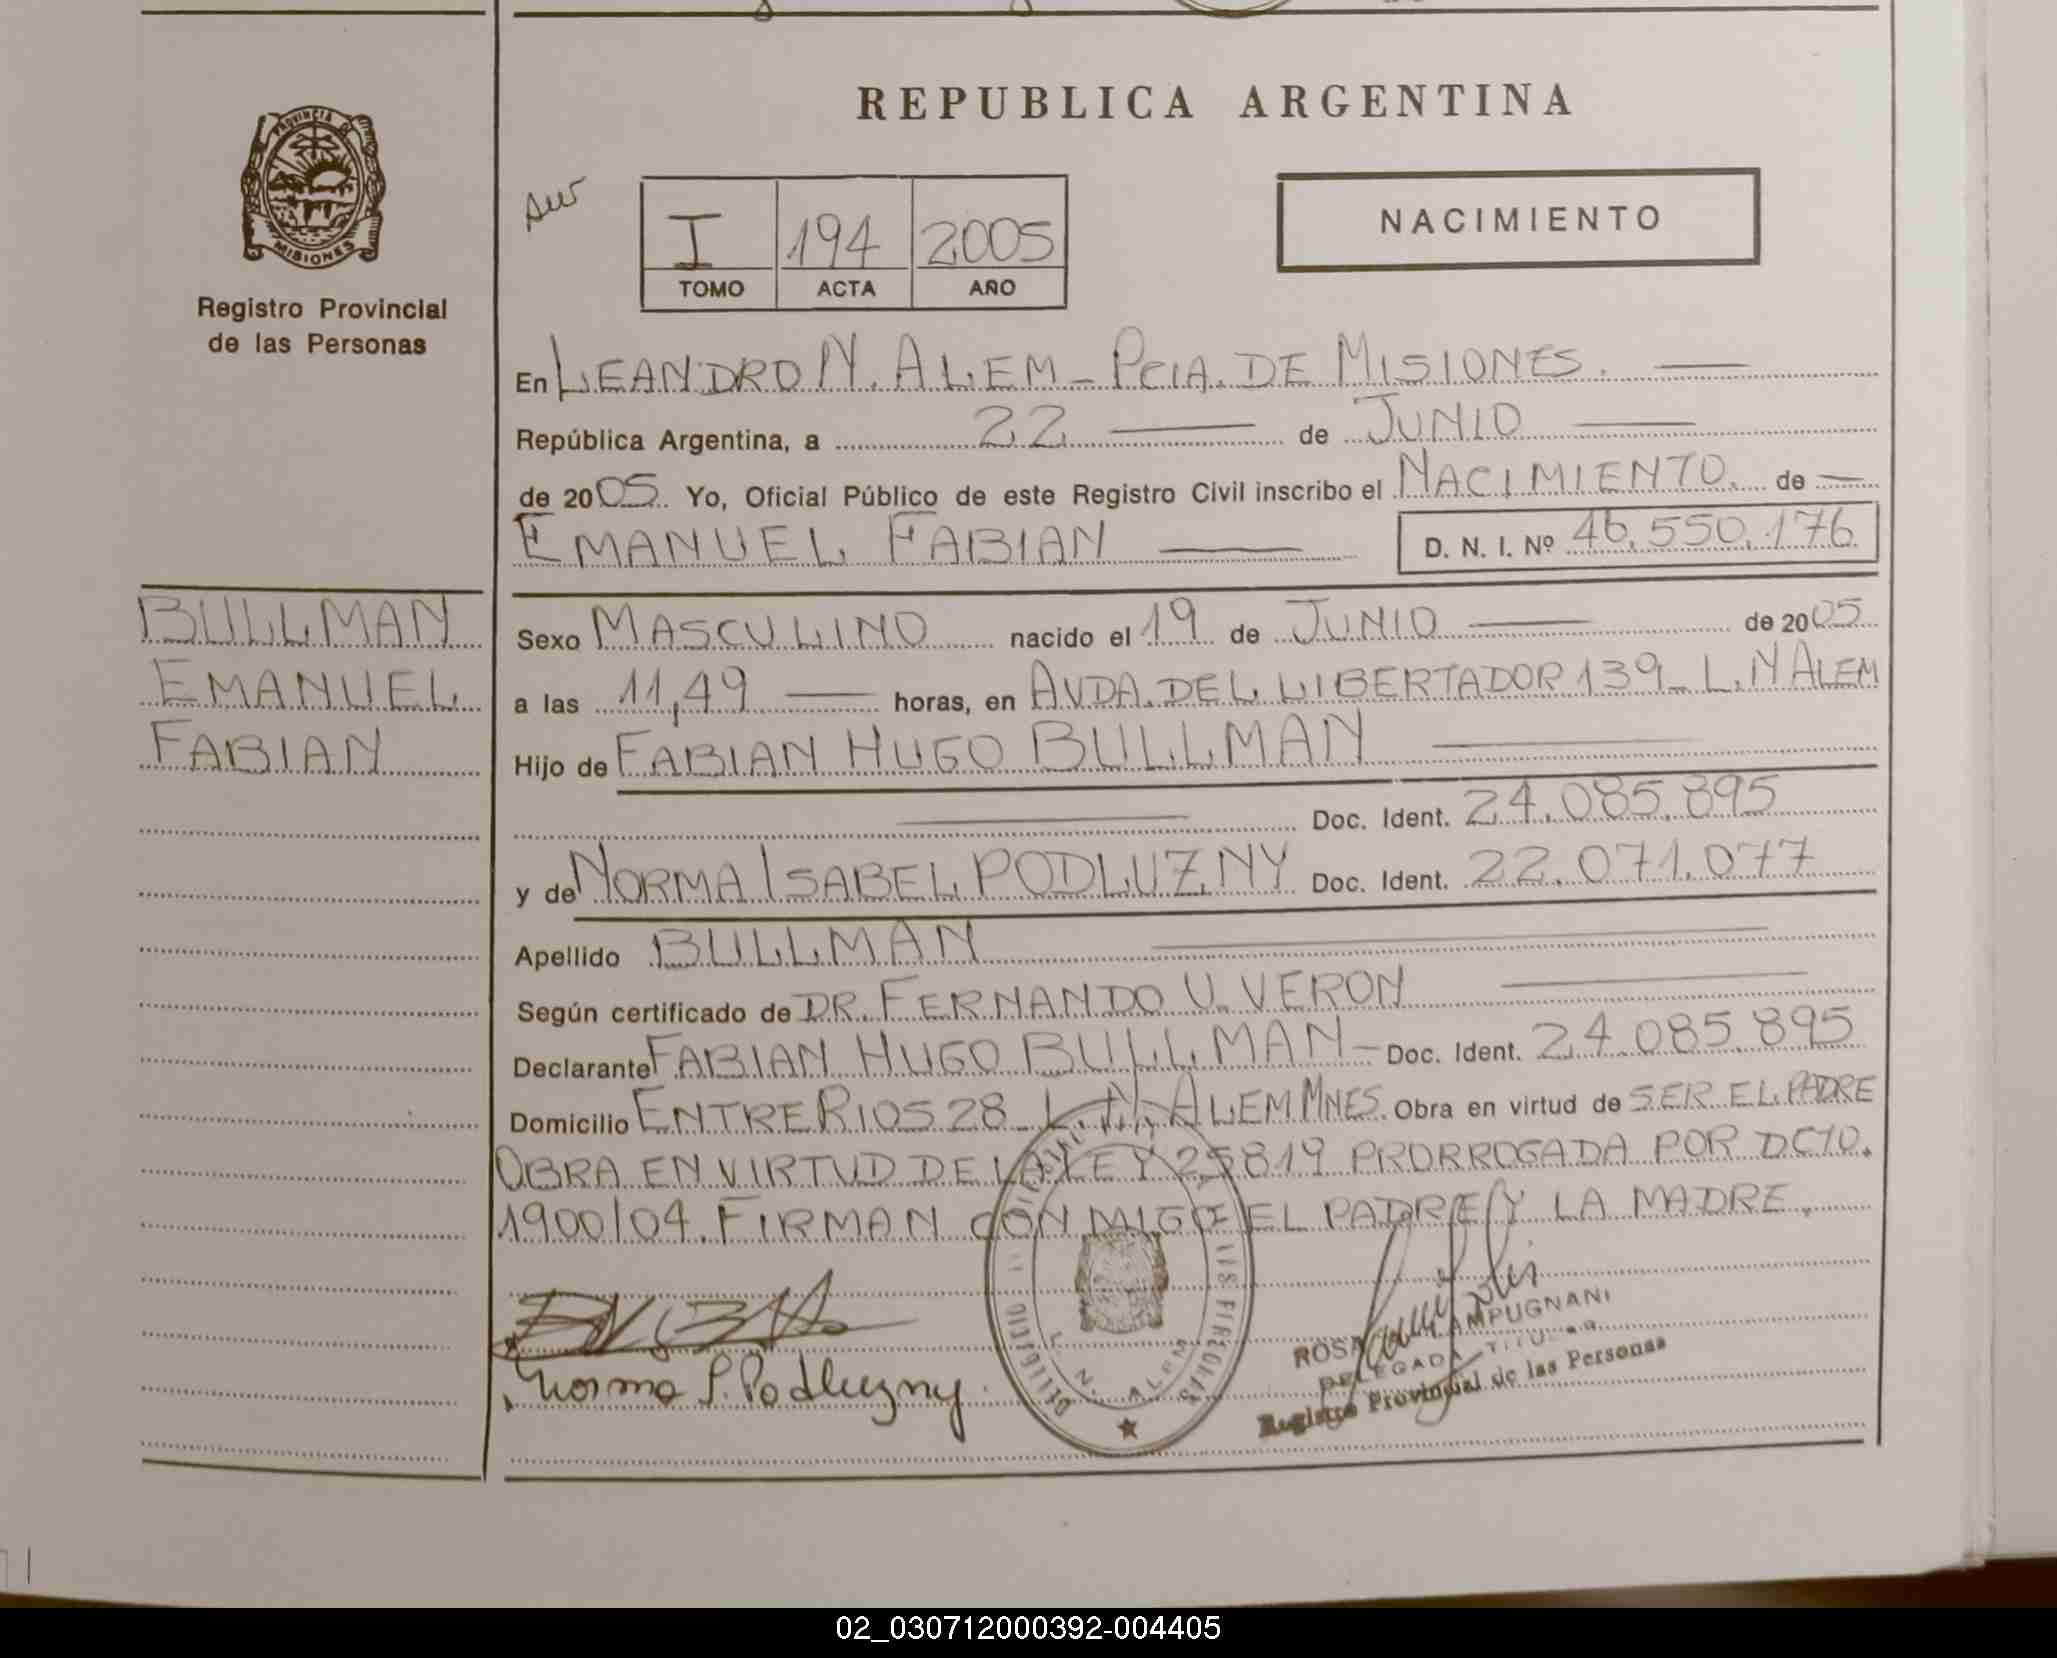 REPUBLICA ARGENTINA
PROVINCIA DE
MISIONES
Registro Provincial
de las Personas
NACIMIENTO
I 194 2005
TOMO ACTA AÑO
En LEANDRO N. ALEM - PCIA. DE MISIONES.
República Argentina, a 22 de JUNIO
de 2005. Yo, Oficial Público de este Registro Civil inscribo el NACIMIENTO. de
EMANUEL FABIAN D. N. I. Nº 46.550.176
BULLMAN
EMANUEL
FABIAN
Sexo MASCULINO nacido el 19 de JUNIO de 2005
a las 11,49 horas, en AVDA. DEL LIBERTADOR 139 - L. N ALEM
Hijo de FABIAN HUGO BULLMAN
Doc. Ident. 24.085.895
y de NORMA ISABEL PODLUZNY Doc. Ident. 22.071.077
Apellido BULLMAN
Según certificado de DR. FERNANDO U. VERON
Declarante FABIAN HUGO BULLMAN - Doc. Ident. 24.085.895
Domicilio ENTRE RIOS 28 - L. N. ALEM MNES. Obra en virtud de SER EL PADRE
OBRA EN VIRTUD DE LA LEY 25819 PRORROGADA POR DCTO.
1900/04. FIRMAN CON MIGO EL PADRE Y LA MADRE.
Norma I. Podluzny
L. N. ALEM
ROSA CAMPUGNANI
DELEGADA TITULAR
Registro Provincial de las Personas
02_030712000392-004405